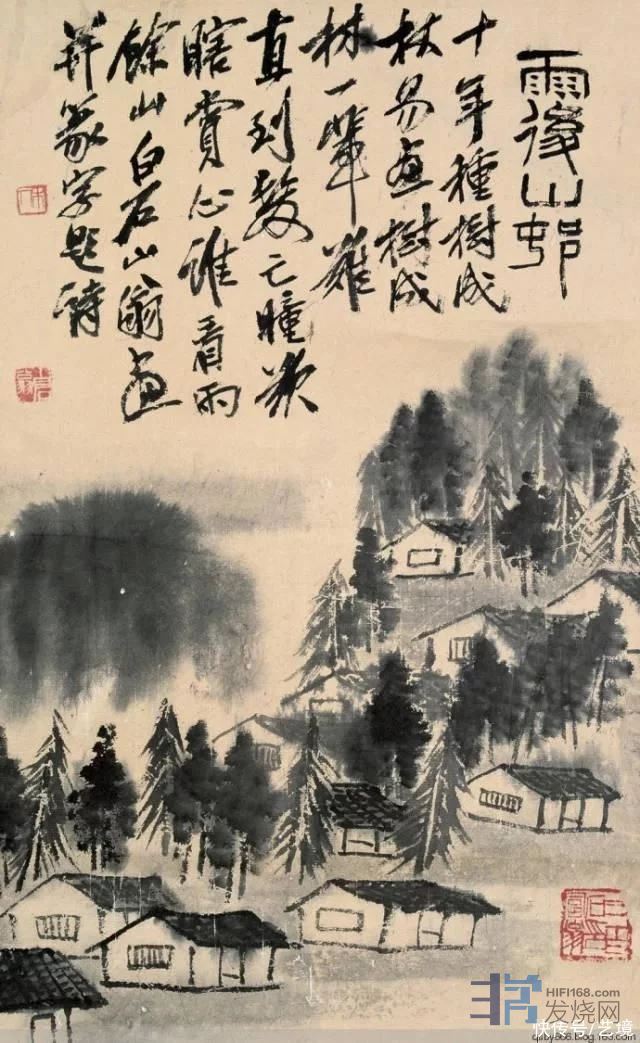 雨後山邨
十年種樹成
林易画樹成
林一輩難
直到髮亡瞳欲
瞎賞心誰看雨
餘山白石山翁画
并篆字題詩
HIFI168.com
发烧网
快传号/艺境